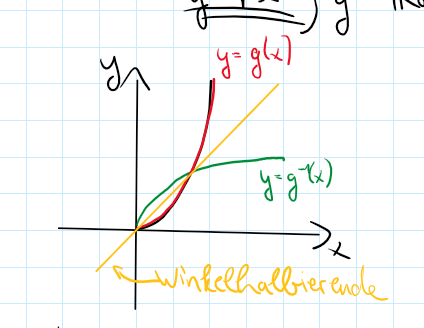 y = g(x)
y
y = g⁻¹(x)
x
Winkelhalbierende